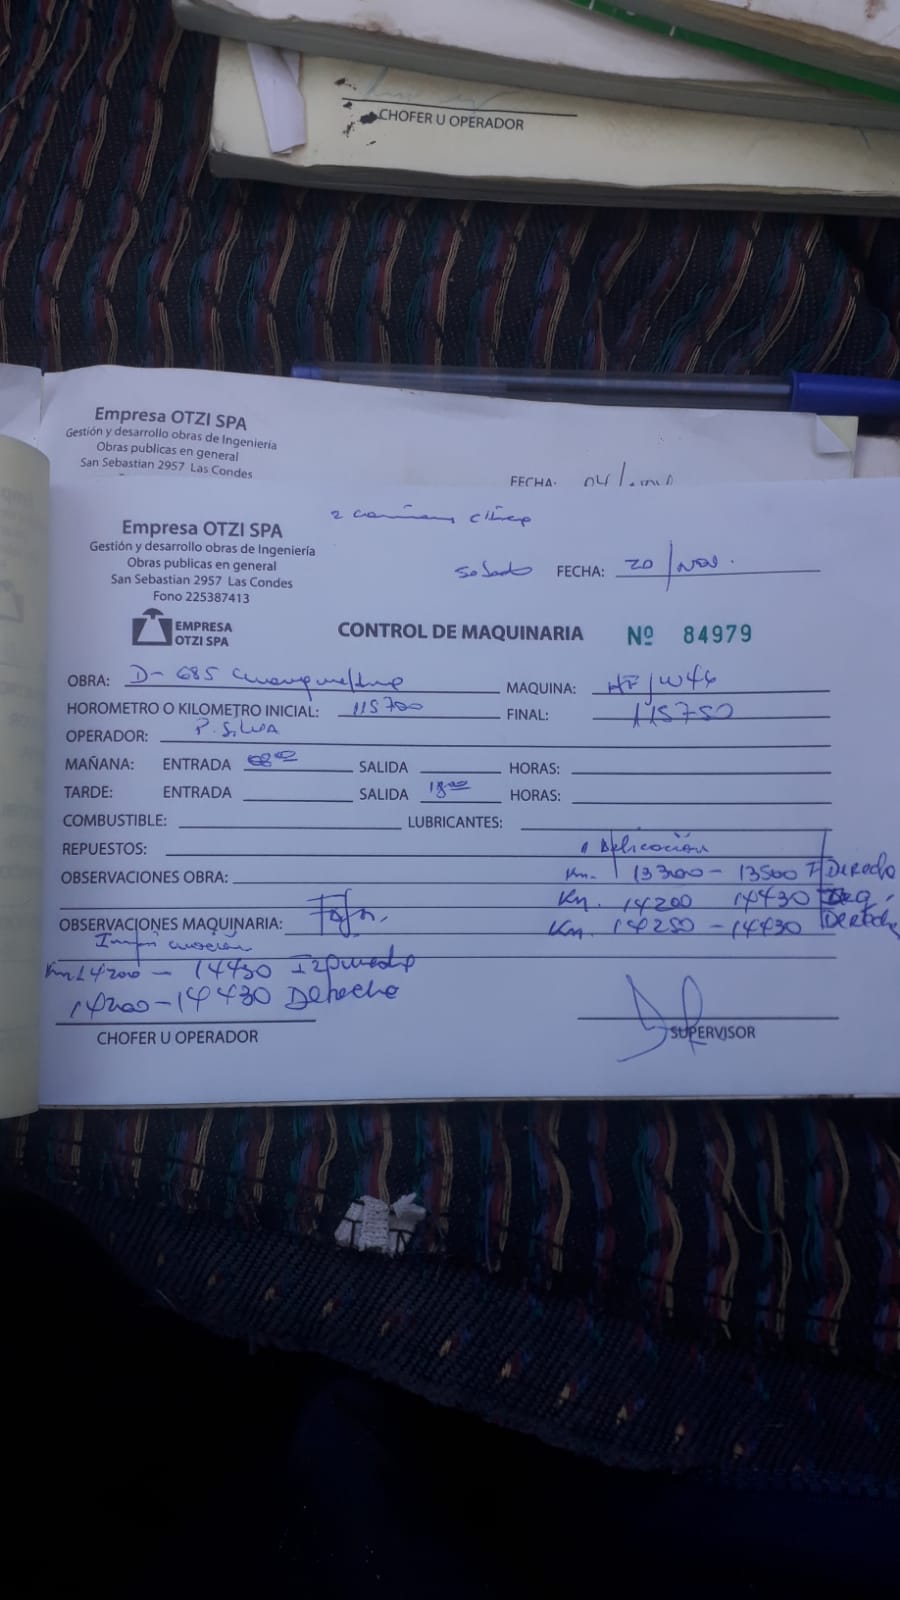 CHOFER U OPERADOR
Empresa OTZI SPA
Gestión y desarrollo obras de Ingeniería
Obras publicas en general
San Sebastian 2957 Las Condes
FECHA: 04/
2
Empresa OTZI SPA
Gestión y desarrollo obras de Ingeniería
Obras publicas en general
San Sebastian 2957 Las Condes
Fono 225387413
Sabado FECHA: 20/NOV.
EMPRESA
OTZI SPA
CONTROL DE MAQUINARIA Nº 84979
OBRA: D-685 MAQUINA:
HOROMETRO O KILOMETRO INICIAL: 115700 FINAL: 115750
OPERADOR: P. SILVA
MAÑANA: ENTRADA 08 00 SALIDA HORAS:
TARDE: ENTRADA SALIDA 18 00 HORAS:
COMBUSTIBLE: LUBRICANTES:
REPUESTOS: Aplicación
OBSERVACIONES OBRA: Km. 13300 - 13500 Derecho
Km. 14200 14430 Izq.
OBSERVACIONES MAQUINARIA: Km. 14250 - 14430 Derecho
Km 14200 - 14430 Izquierdo
14200 - 14430 Derecho
CHOFER U OPERADOR
SUPERVISOR